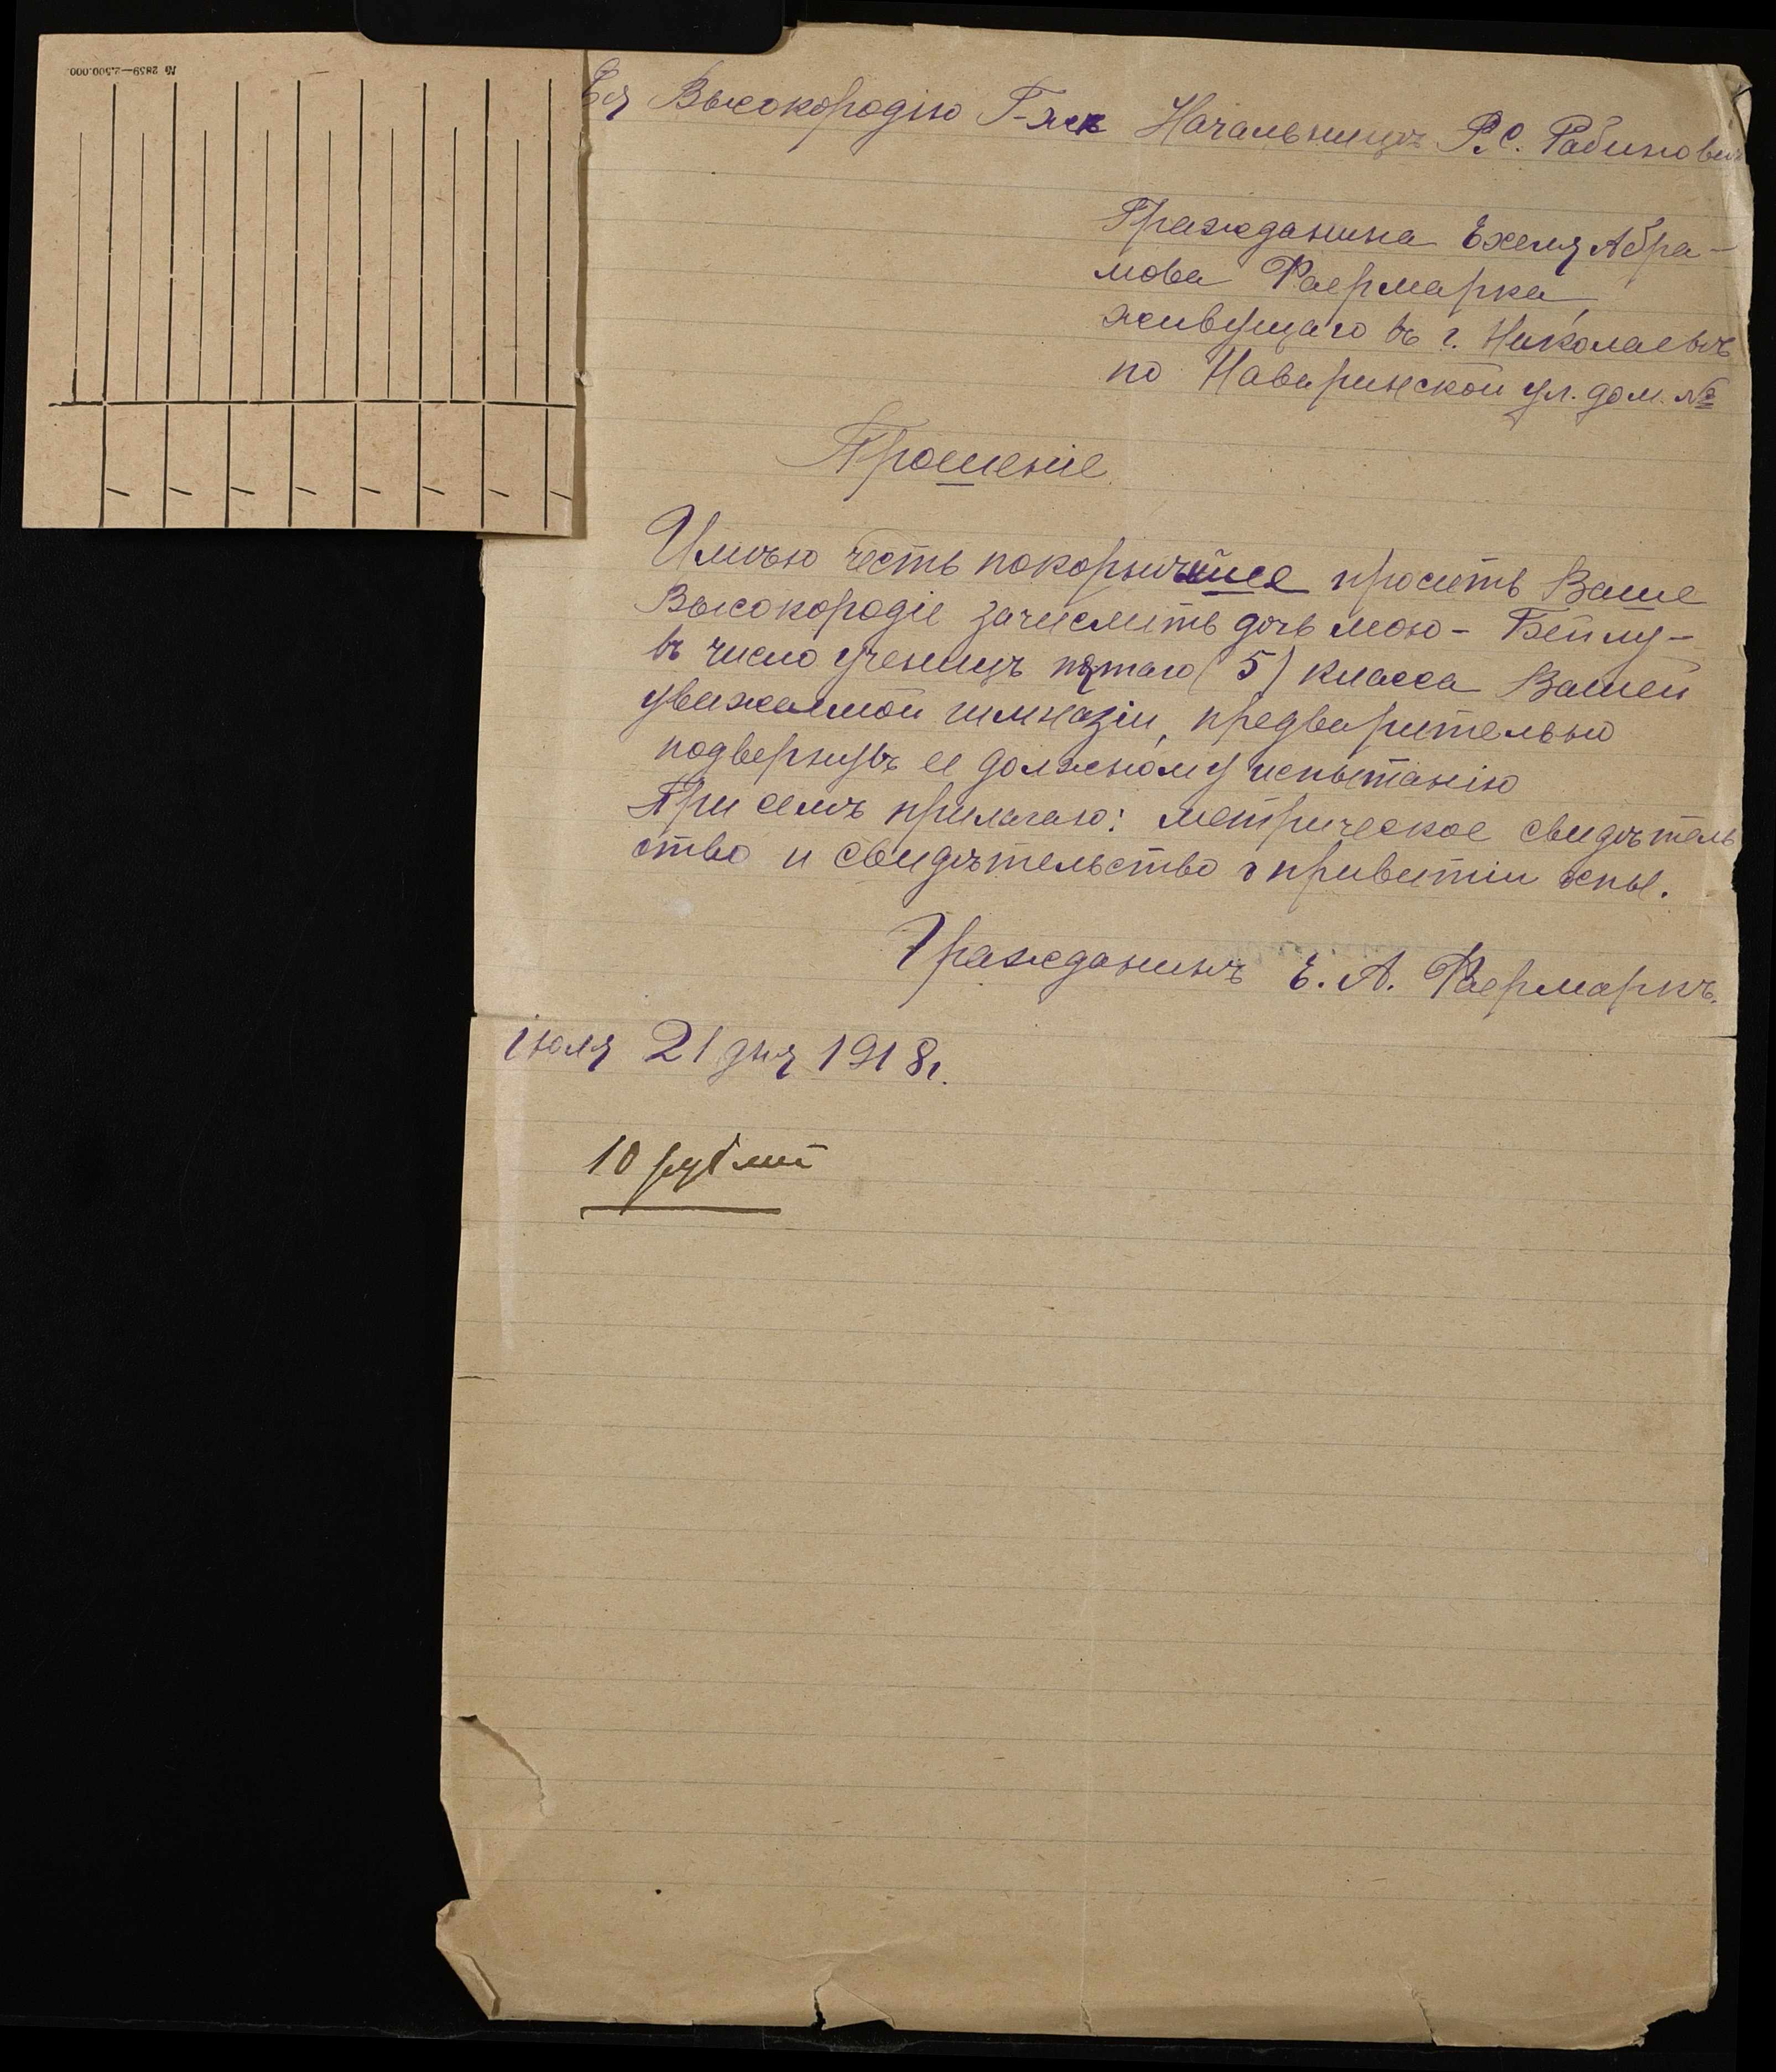 № 2859—2.500.000.
Ея Высокородію Г-жѣ Начальницѣ Р.С. Рабинович
Гражданина Ехеля Абра-
мова Фаермарка,
живущаго въ г. Николаевѣ
по Наваринской ул. дом. №
Прошеніе.
Имѣю честь покорнѣйше просить Ваше
Высокородіе зачислить дочь мою - Бейлу -
въ число ученицъ пятаго (5) класса Вашей
уважаемой гимназіи, предварительно
подвергнувъ ее должному испытанію
При семъ прилагаю: метрическое свидѣтель
ство и свидѣтельство о привитіи оспы.
Гражданинъ Е. А. Фаермаркъ.
Іюля 21 дня 1918 г.
10 рублей